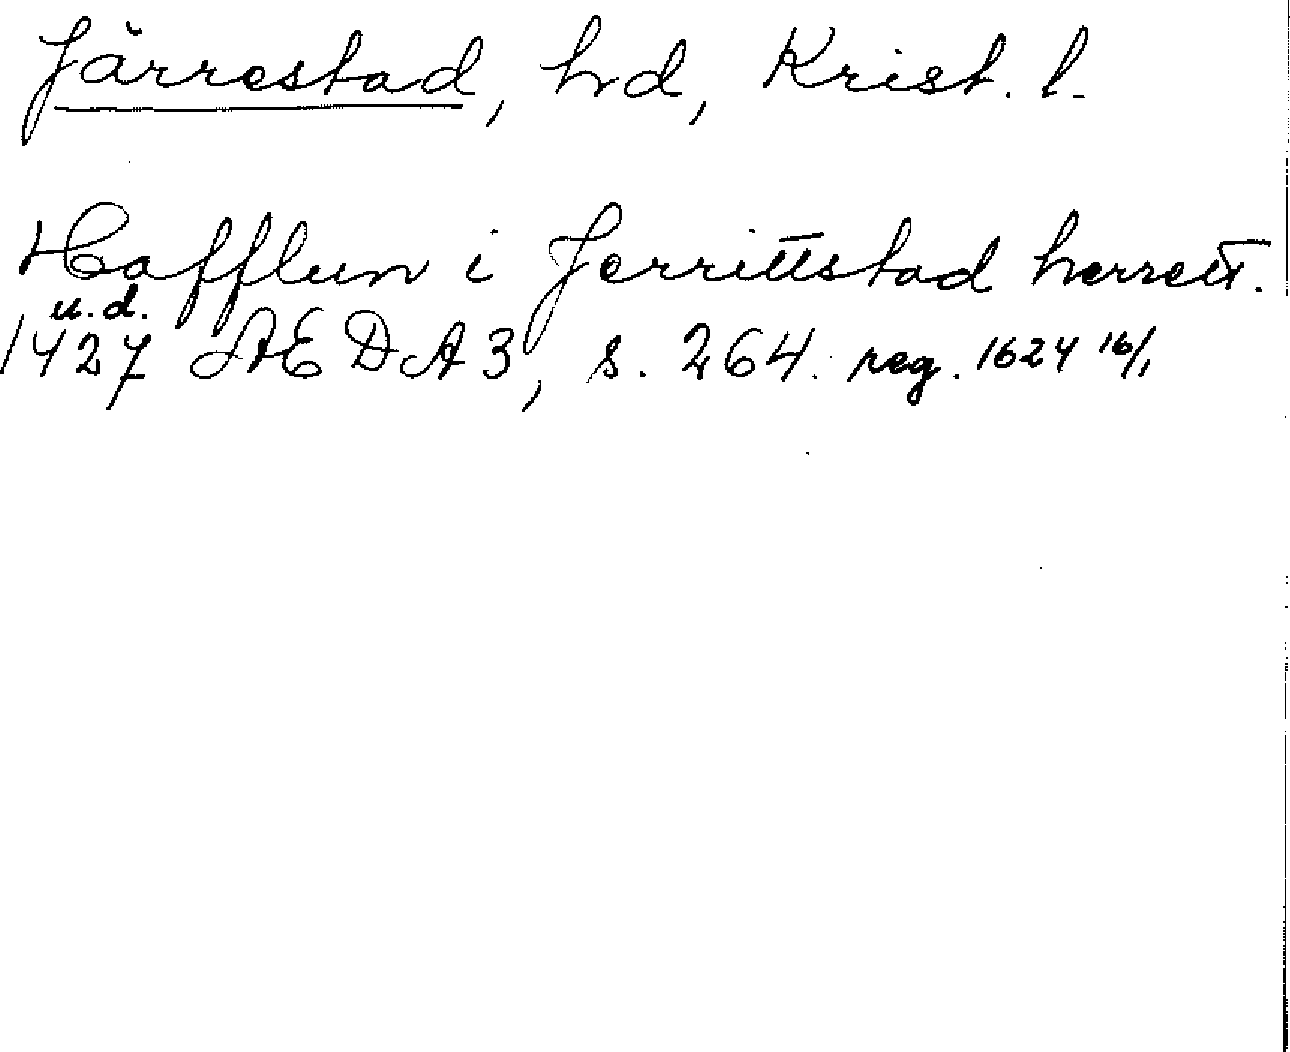 Järrestad, hd, Krist. l.
Hafflun i Jerrittstad herrett.
u.d.
1427 ÆDA 3, s. 264. reg. 1624 16/1